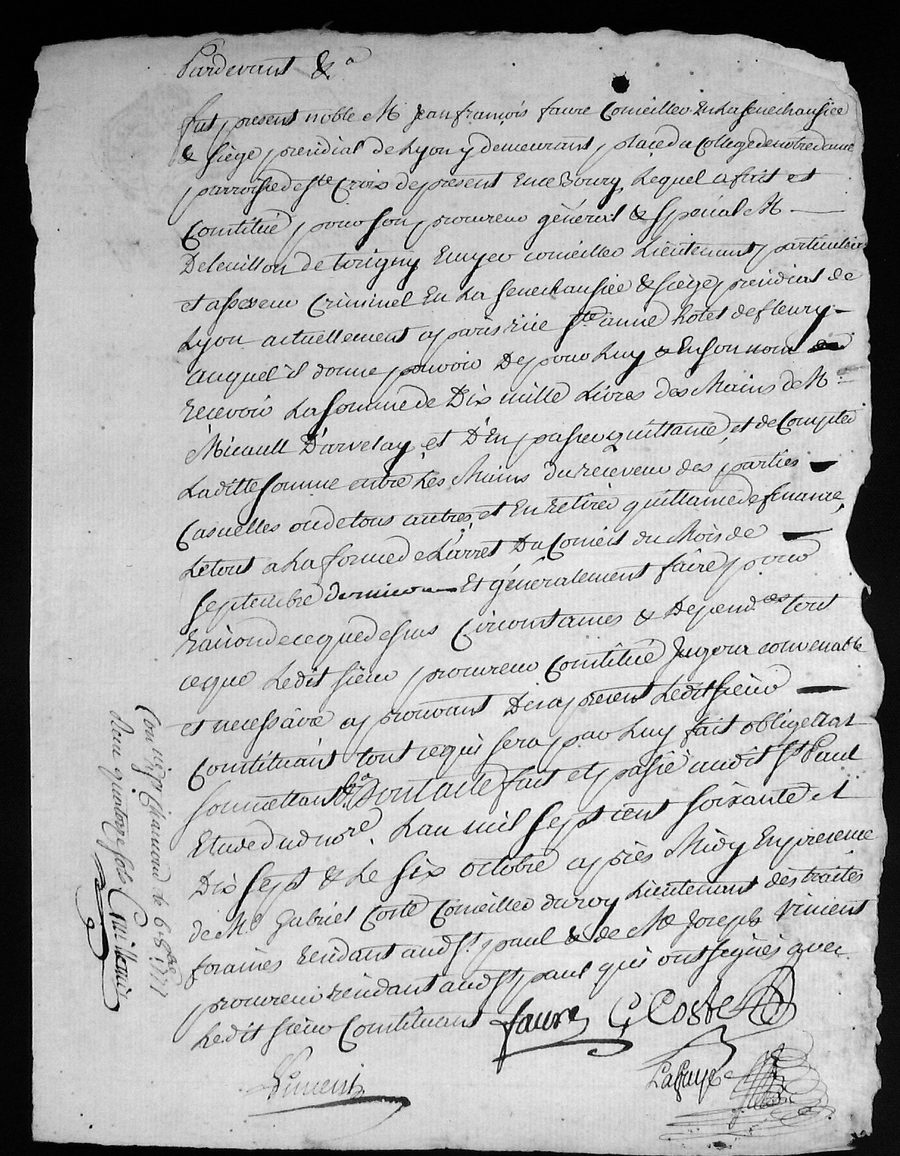 Pardevant &a
fut present noble Me Jean françois faure Conseiller En La Senechaussée
& Siège presidial de Lyon y demeurant place du College de notre dame
parroisse de Ste Croix de present En ce Bourg, Lequel a fait et
Constitué pour son procureur général & Special Mr
Deleuillon de torigny Ecuyer conseiller Lieutenant particulier
et assesseur Criminel En La Senechaussée & Siège presidial de
Lyon actuellement a paris rüe Ste anne hotel de fleury
auquel il donne pouvoir De pour Luy & En son nom
recevoir La somme de Dix mille Livres des Mains de Mr
Micault D'arvelay et D'En passer quittance, et de Compter
Laditte somme entre Les Mains du receveur des parties
Casuelles ou de tous autres, et En retirer quittance de finance,
Le tout a La forme de L'arret Du Conseil du Mois de
Septembre dernier Et généralement faire pour
Raison de ce que dessus Circonstances & Dependces tout
ce que Ledit sieur procureur Constitué Jugera convenable
et necessaire aprouvant Des a present Ledit sieur
Constituant tout ce qui sera par Luy fait obligeant
soumettant &a Dont acte fait et passé audit St Paul
Etude dud nore L'an mil sept cent soixante et
Dix sept & Le Six octobre après Midy En presence
de Me Gabriel Coste Conseiller du roy Lieutenant des traites
foraines residant aud St paul & de Me Joseph Vincent
procureur residant aud St paul qui ont signés avec
Ledit sieur Constituant faure G Coste
Vincent Lafaye
Con le 6 8bre 1777
quatorze sols